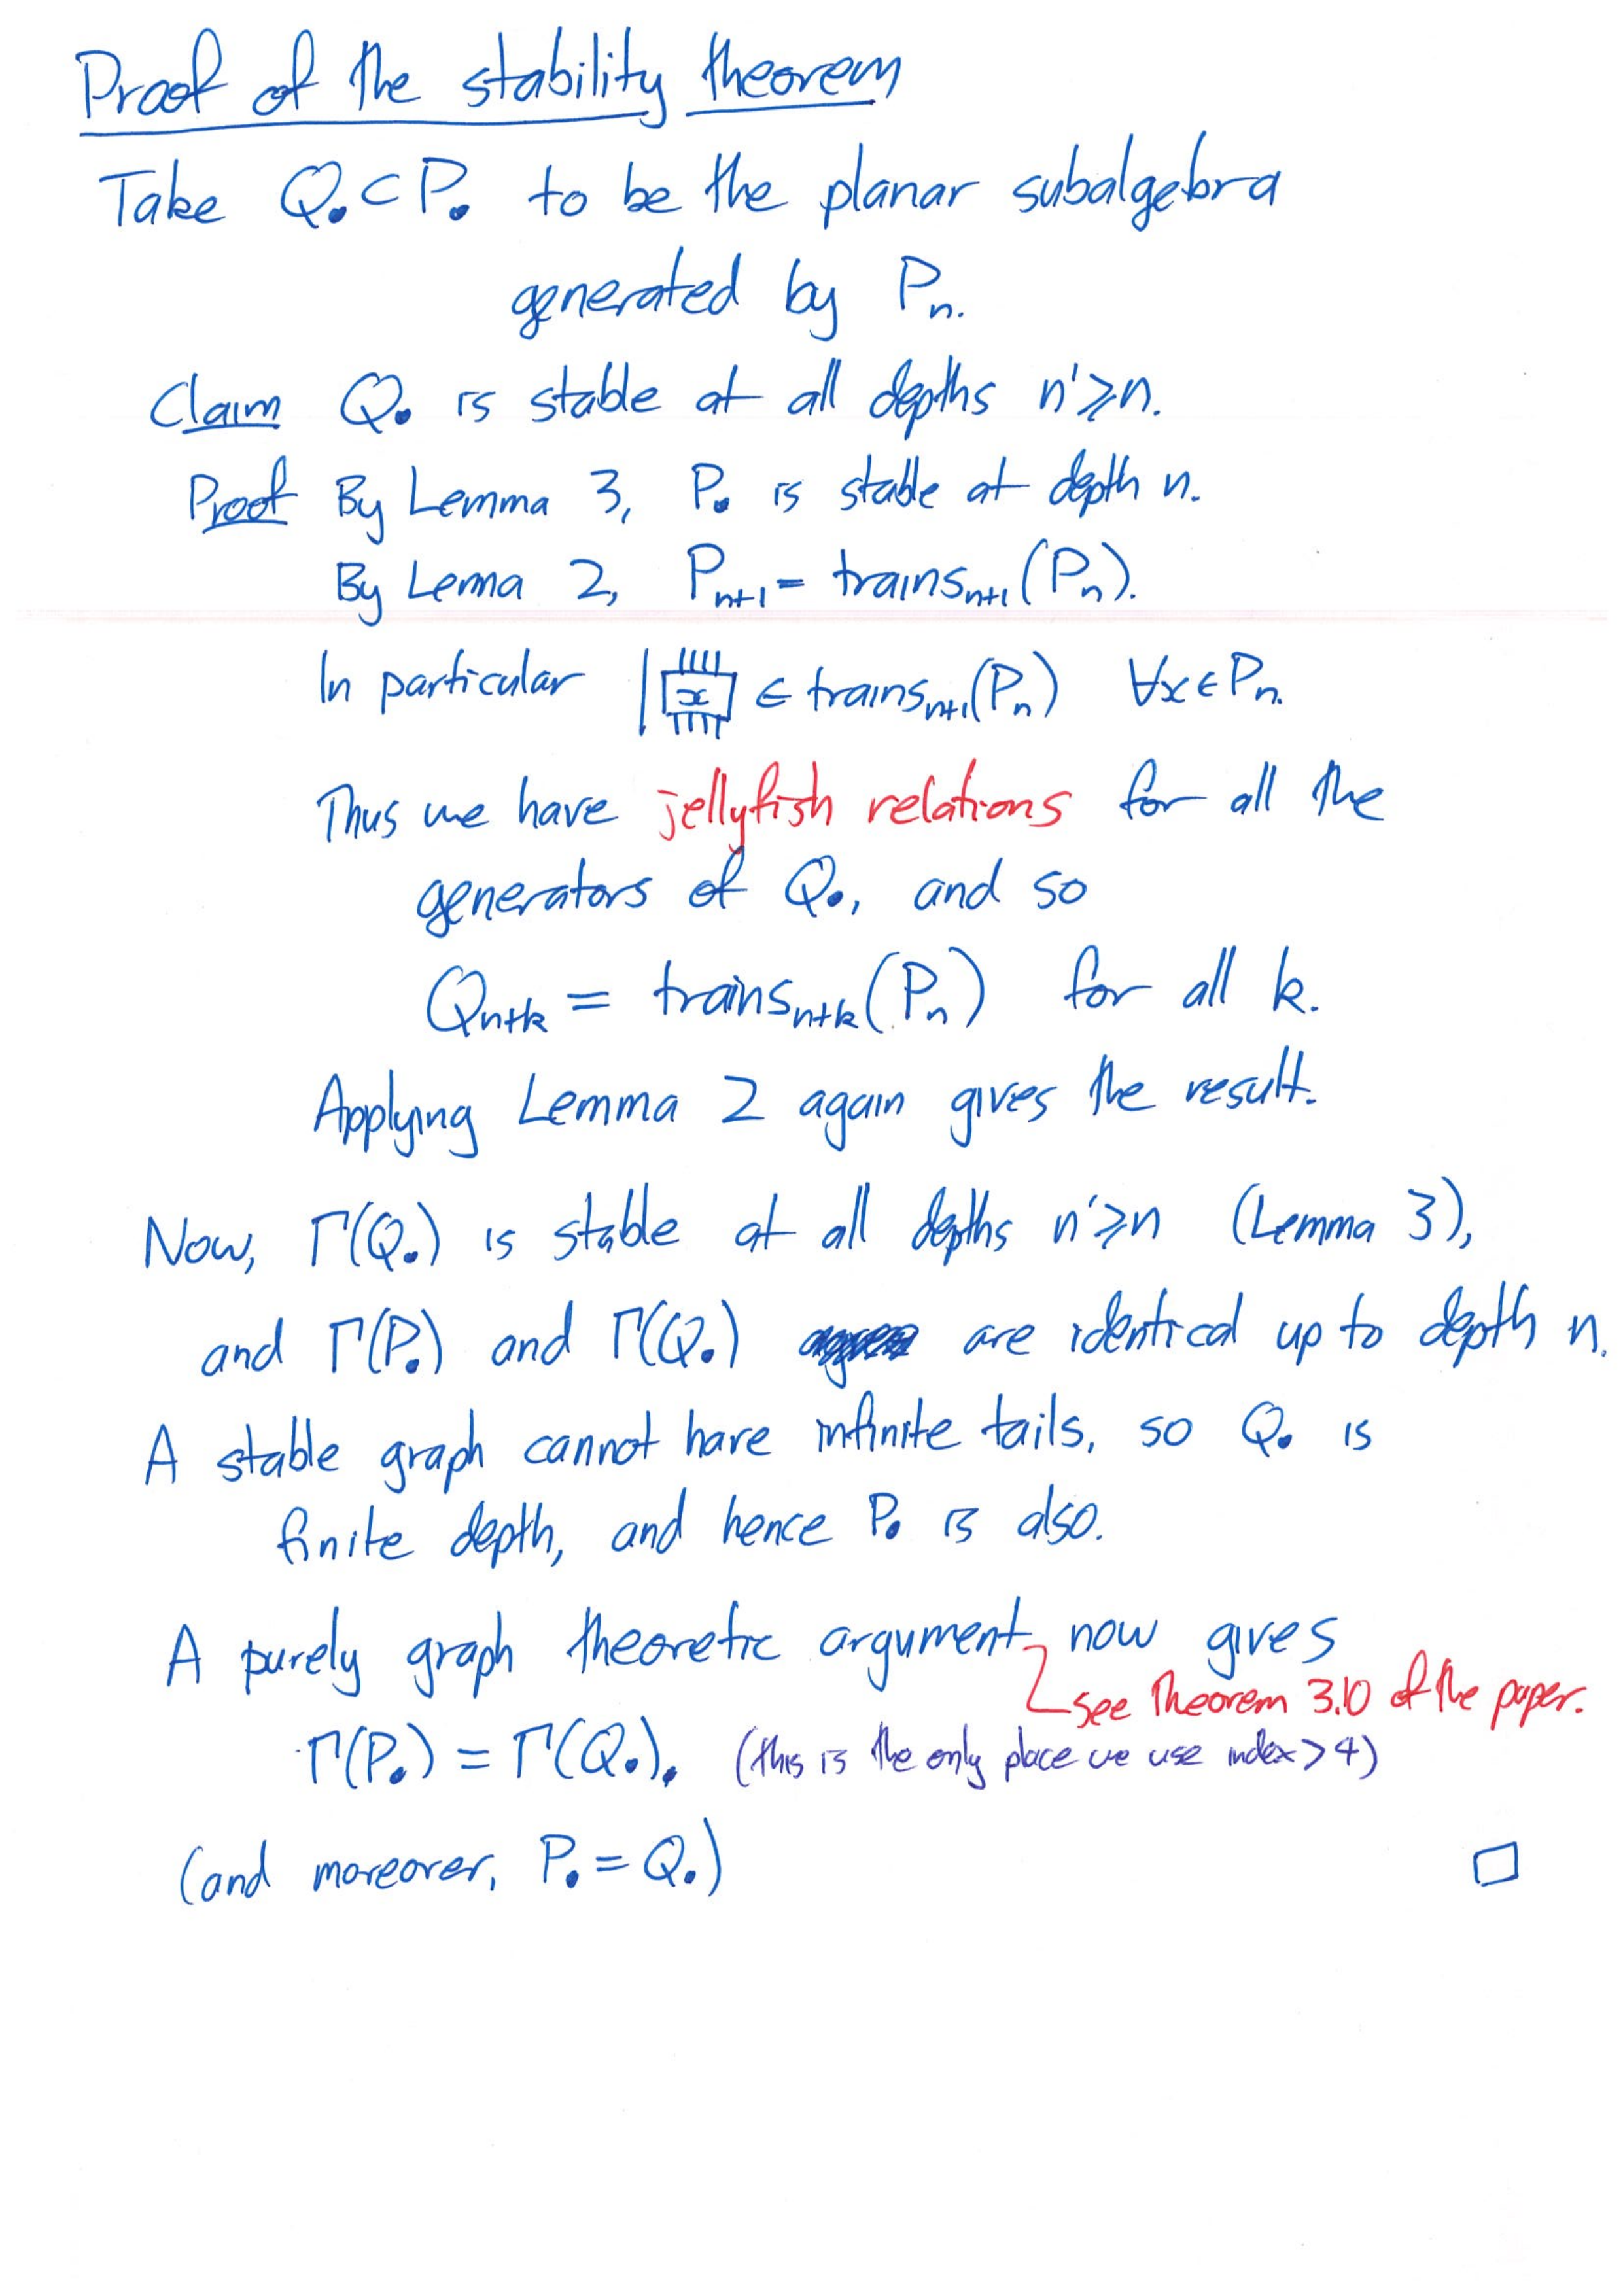 Proof of the stability theorem
Take Q• ⊂ P• to be the planar subalgebra
generated by Pn.
Claim Q• is stable at all depths n'≥n.
Proof By Lemma 3, P• is stable at depth n.
By Lemma 2, Pn+1 = trainsn+1(Pn).
In particular | x ∈ trainsn+1(Pn) ∀x∈Pn.
Thus we have jellyfish relations for all the
generators of Q•, and so
Qn+k = trainsn+k(Pn) for all k.
Applying Lemma 2 again gives the result.
Now, Γ(Q•) is stable at all depths n'≥n (Lemma 3),
and Γ(P•) and Γ(Q•) are identical up to depth n.
A stable graph cannot have infinite tails, so Q• is
finite depth, and hence P• is also.
A purely graph theoretic argument now gives
see Theorem 3.10 of the paper.
Γ(P•) = Γ(Q•). (this is the only place we use index > 4)
(and moreover, P• = Q•)